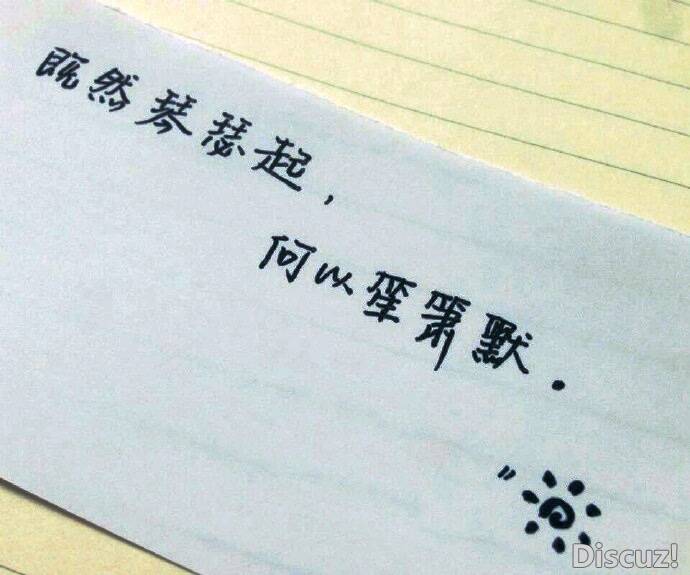 既然琴瑟起，
何以笙箫默．
Discuz!